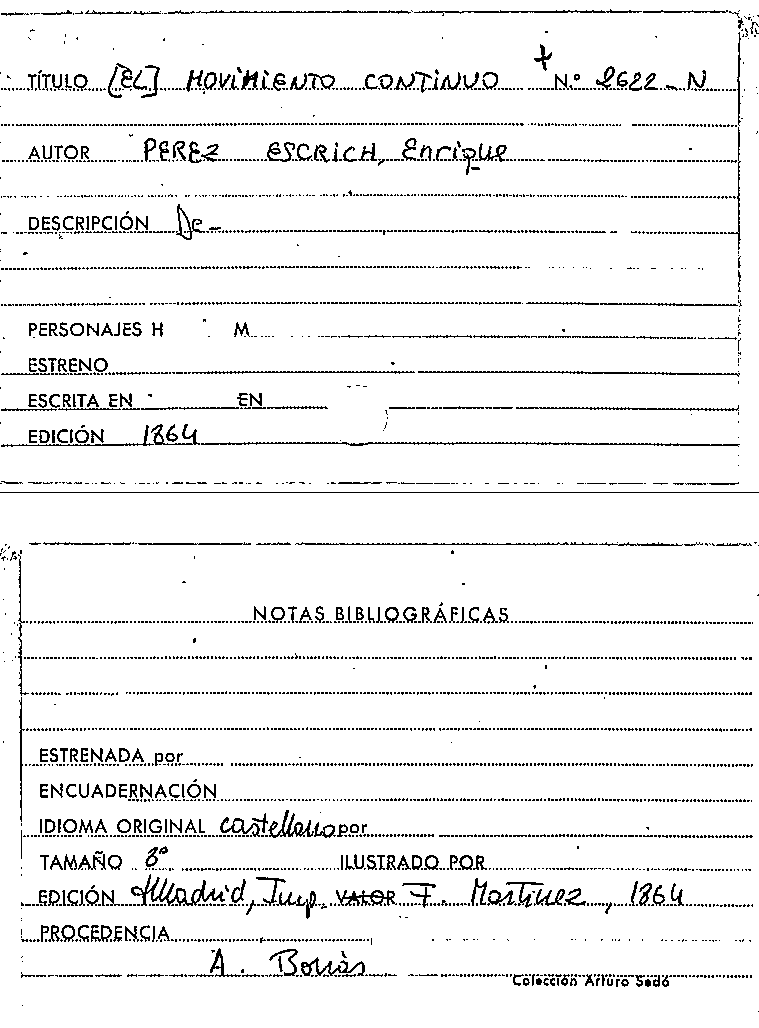 TÍTULO [EL] MOVIMIENTO CONTINUO + N.º 2622-N
AUTOR PEREZ ESCRICH, Enrique
DESCRIPCIÓN De-
PERSONAJES H M
ESTRENO
ESCRITA EN EN
EDICIÓN 1864
NOTAS BIBLIOGRÁFICAS
ESTRENADA por
ENCUADERNACIÓN
IDIOMA ORIGINAL castellano por
TAMAÑO 8º ILUSTRADO POR
EDICIÓN Madrid, Imp. VALOR F. Martínez, 1864
PROCEDENCIA
A. Borràs
Colección Arturo Sedó